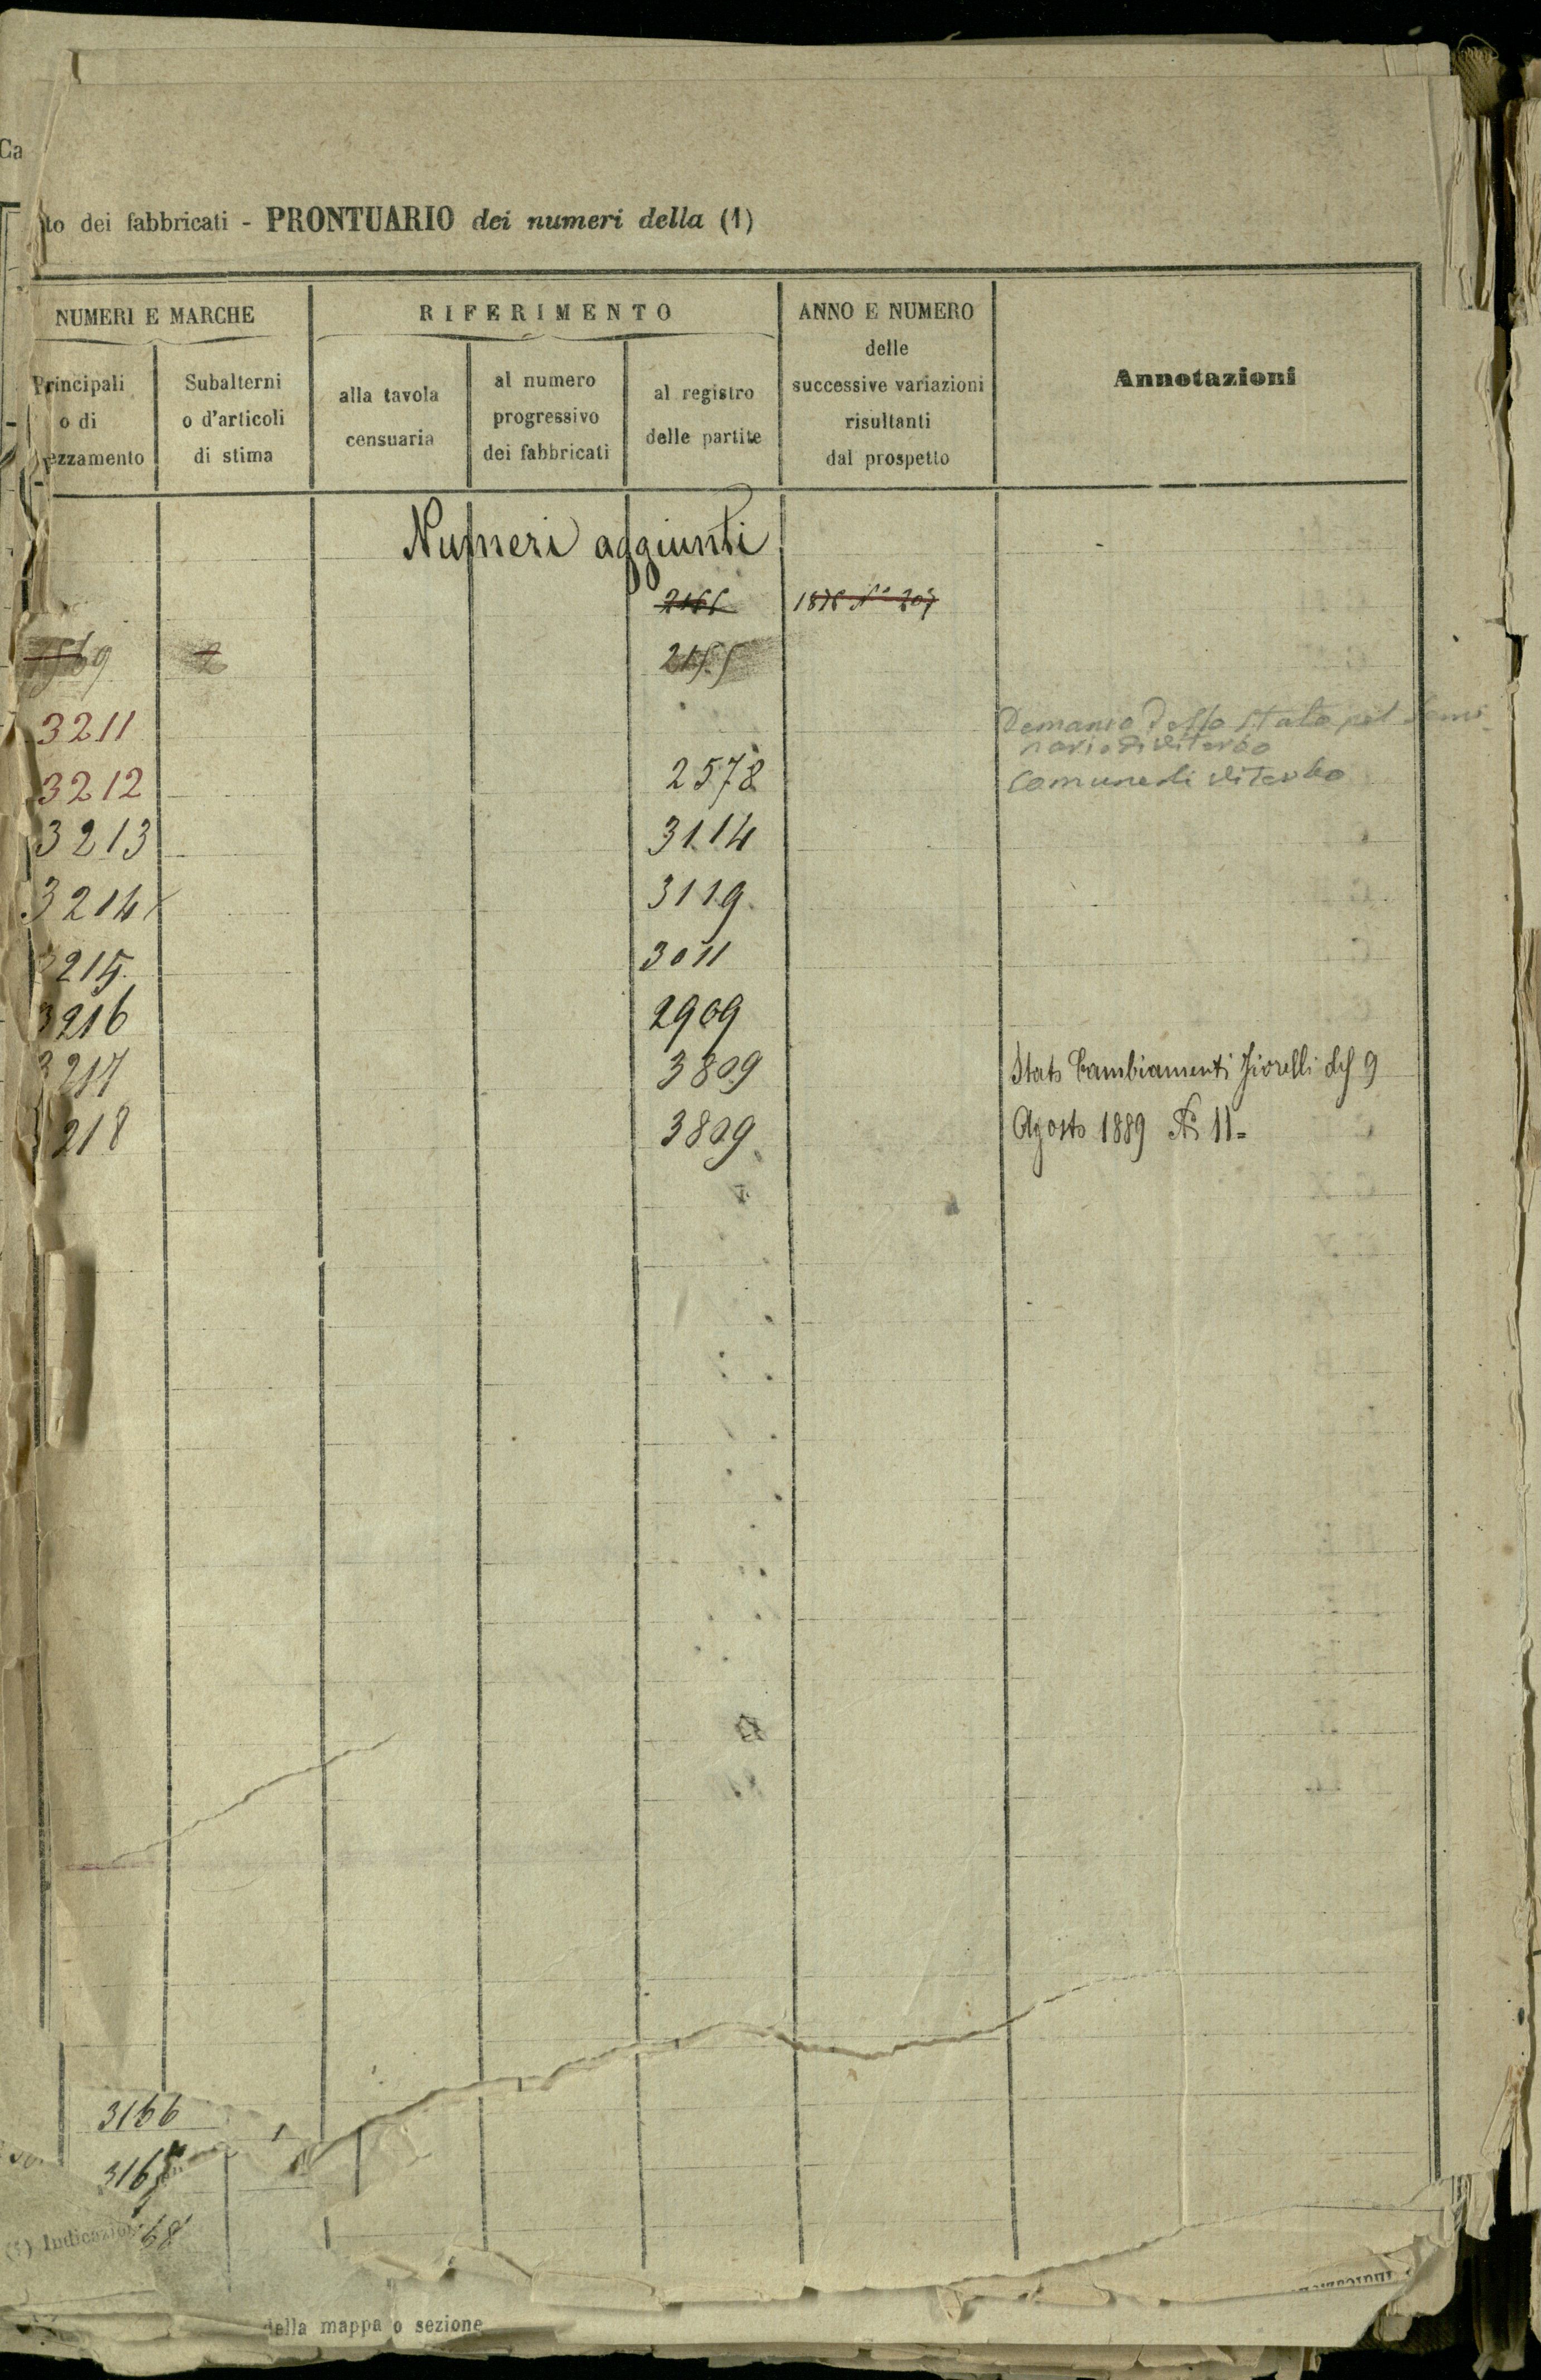 Ca
to dei fabbricati - PRONTUARIO dei numeri della (1)
NUMERI E MARCHE
RIFERIMENTO
ANNO E NUMERO
delle
successive variazioni
risultanti
dal prospetto
Annotazioni
Principali
o di
ezzamento
Subalterni
o d'articoli
di stima
alla tavola
censuaria
al numero
progressivo
dei fabbricati
al registro
delle partite
Numeri aggiunti
2155
3211 Demanio dello Stato pel Semi
nario di Viterbo
3212 2578 Comune di Viterbo
3213 3114
3214 3119
3215 3011
3216 2909
3217 3809 Stato Cambiamenti Fiorelli del 9
3218 3809 Agosto 1889 N° 11=
3166
316
68
(1) Indicazione
della mappa o sezione